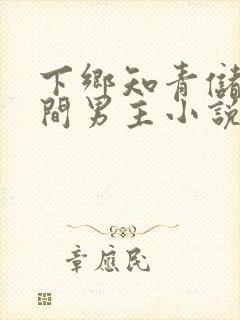 下鄉知青儲
間男主小說
章應民